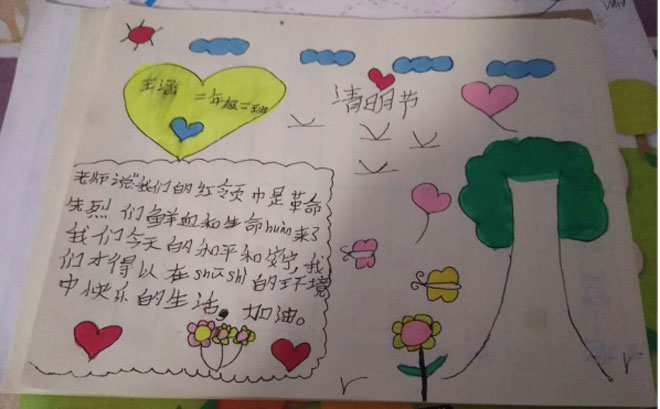 二年级二班
清明节
老师说“我们的红领巾是革命
先烈们鲜血和生命huàn来了
我们今天的和平和安宁,我
们才得以在shūshì的环境
中快乐的生活，加油。